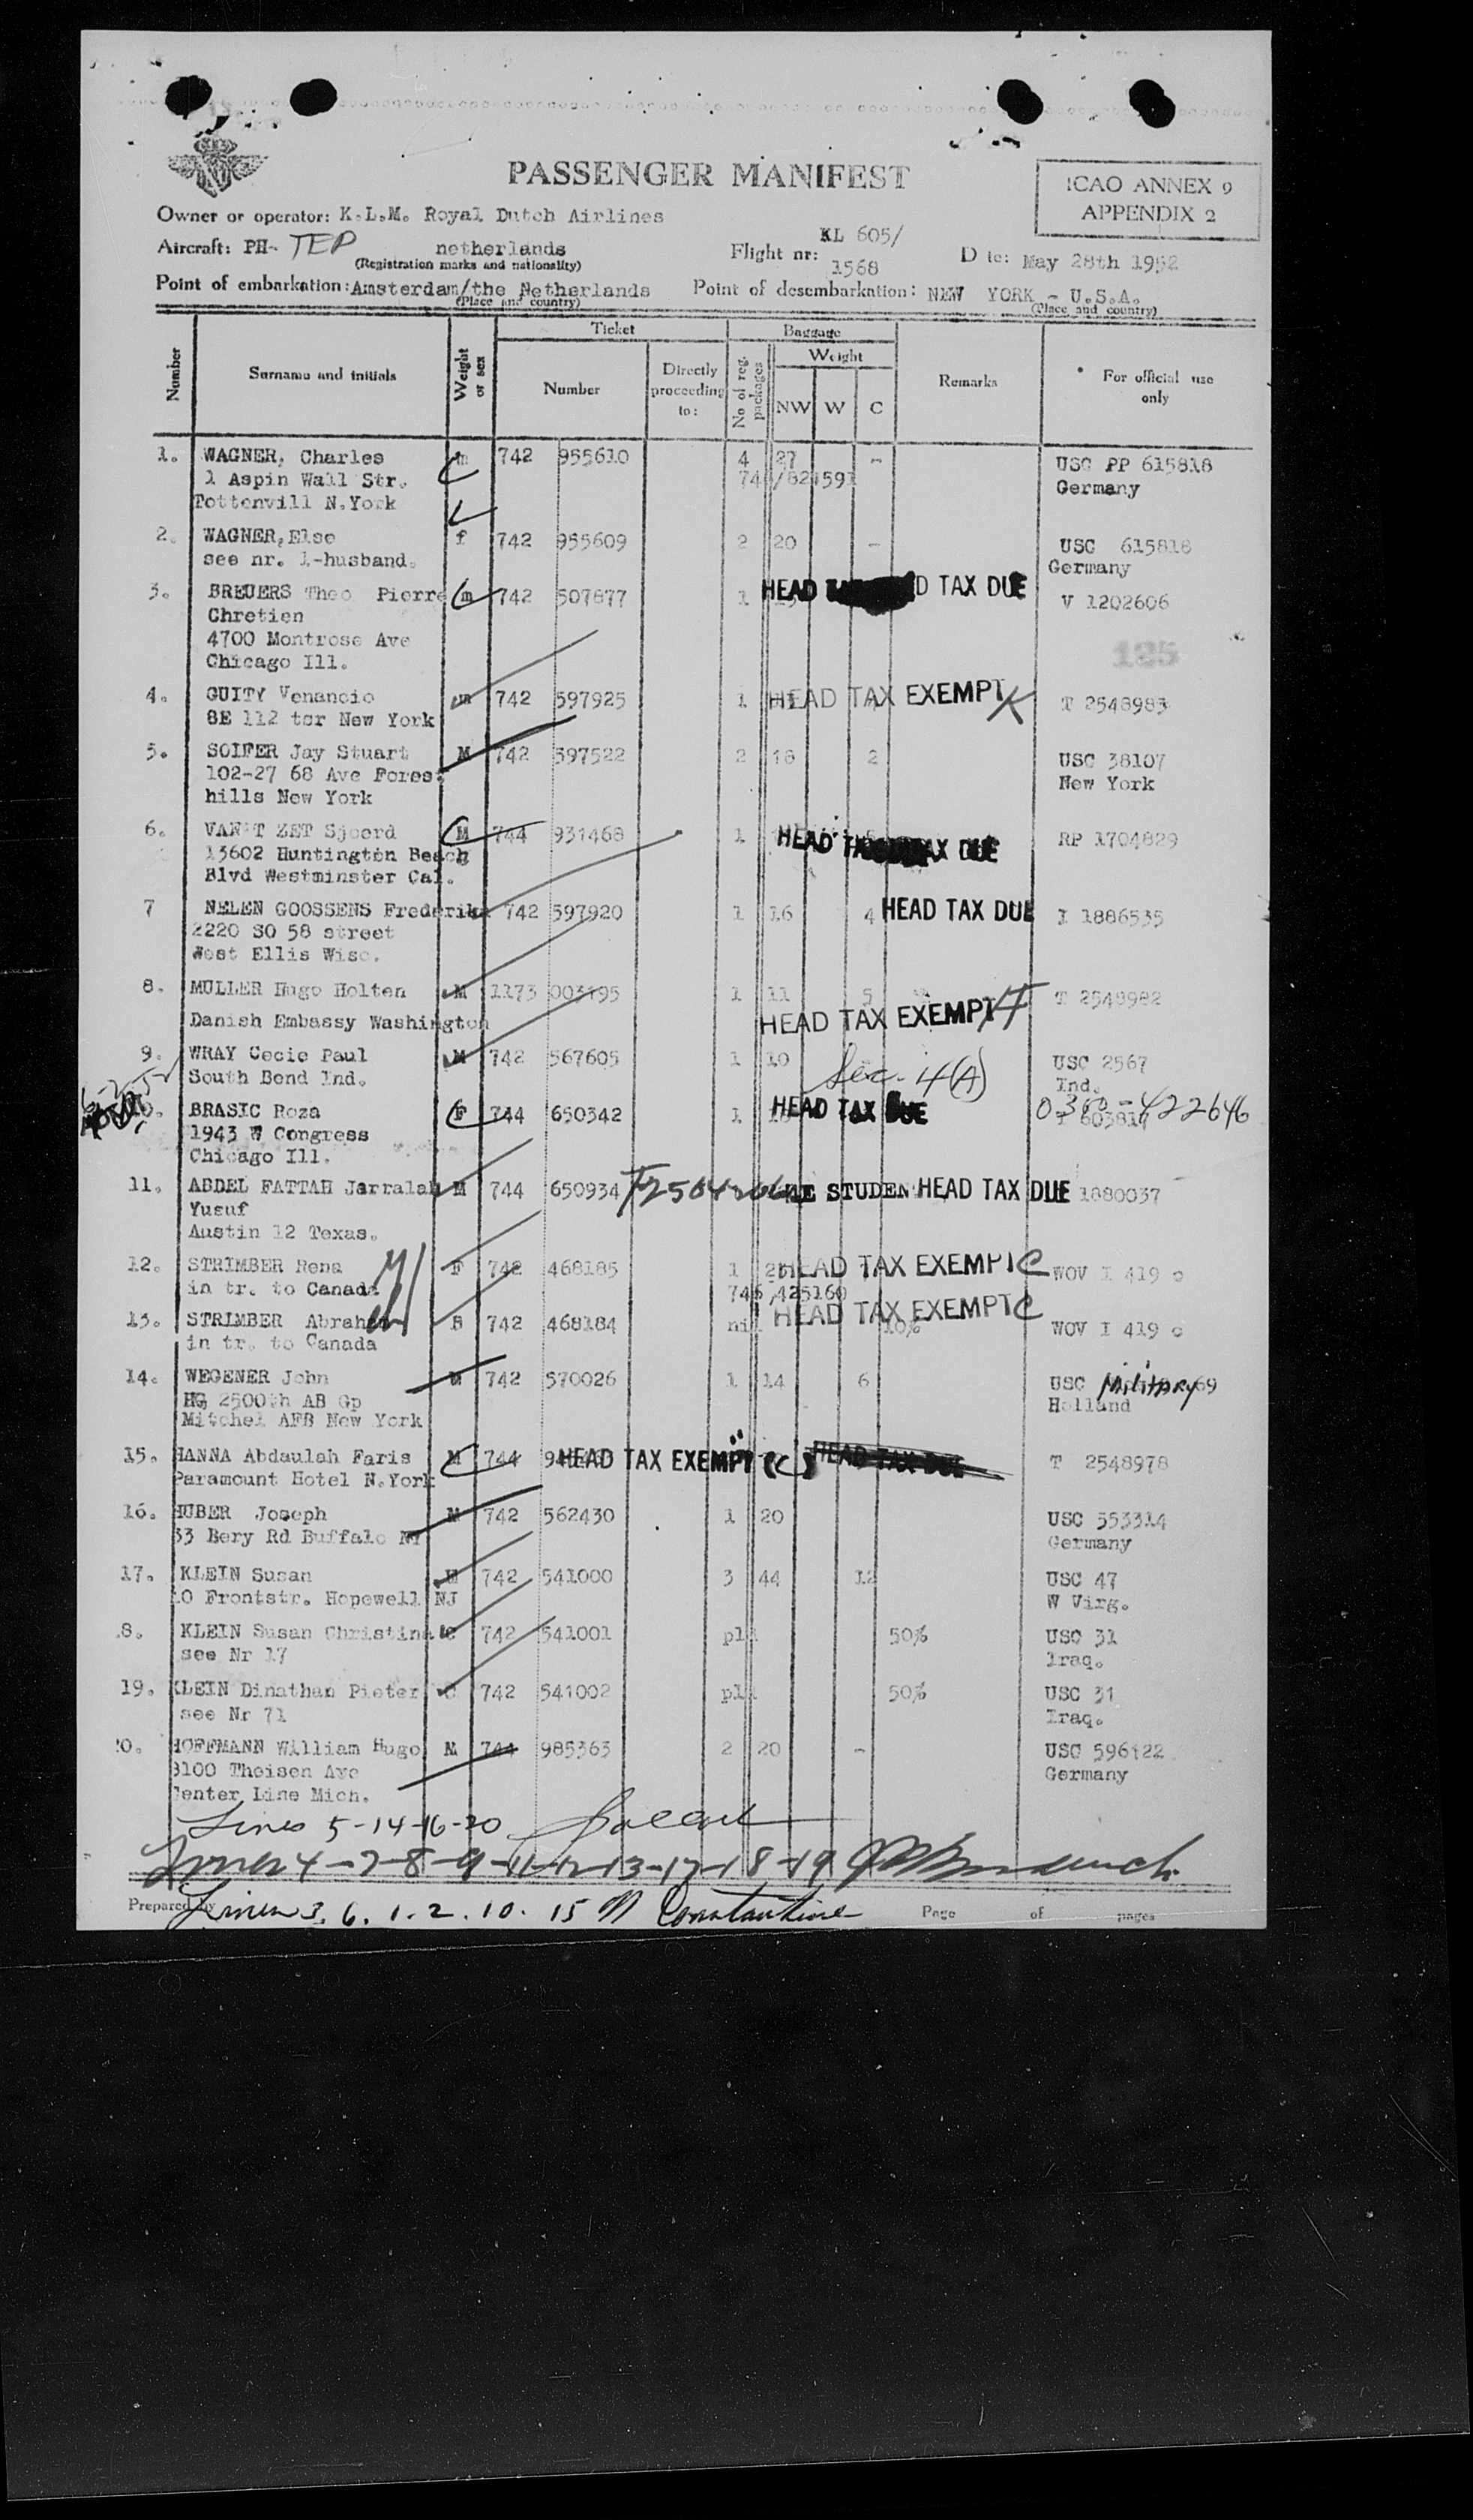 PASSENGER MANIFEST
ICAO ANNEX 9
APPENDIX 2
Owner or operator: K.L.M. Royal Dutch Airlines
Aircraft: PH- TEP netherlands
(Registration marks and nationality)
Flight nr: KL 605/
1568
D te: May 28th 1952
Point of embarkation: Amsterdam/the Netherlands
(Place and country)
Point of desembarkation: NEW YORK - U.S.A.
(Place and country)
Number Surname and initials Weight or sex Ticket Baggage Remarks For official use only
Number Directly proceeding to: No of reg. packages Weight
NW W C
1. WAGNER, Charles m 742 955610 4 27 - USC PP 615818
1 Aspin Wall Str. Germany
Tottenvill N.York
2. WAGNER, Else f 742 955609 2 20 - USC 615818
see nr. 1-husband. Germany
3. BREUERS Theo Pierre m 742 507877 1 HEAD D TAX DUE V 1202606
Chretien
4700 Montrose Ave
Chicago Ill. 125
4. GUITY Venancio m 742 597925 1 HEAD TAX EXEMPT K T 2548983
8E 112 tsr New York
5. SOIFER Jay Stuart M 742 597522 2 18 2 USC 38107
102-27 68 Ave Forest New York
hills New York
6. VAN'T ZET Sjoerd M 744 931468 1 HEAD TAX DUE RP 1704829
13602 Huntington Beach
Blvd Westminster Cal.
7 NELEN GOOSSENS Frederika 742 597920 1 16 4 HEAD TAX DUE I 1886535
2220 SO 58 street
West Ellis Wisc.
8. MULLER Hugo Holten M 1173 003195 1 11 5 T 2548982
Danish Embassy Washington HEAD TAX EXEMPT
9. WRAY Cecie Paul M 742 567605 1 10 USC 2567
South Bend Ind. Sec. 4(A) Ind.
10. BRASIC Roza F 744 650342 1 HEAD TAX DUE 0380-422646
1943 W Congress
Chicago Ill.
11. ABDEL FATTAH Jarralah M 744 650934 STUDENT HEAD TAX DUE 1880037
Yusuf
Austin 12 Texas.
12. STRIMBER Rena F 742 468185 1 HEAD TAX EXEMPT C WOV I 419 c
in tr. to Canada 425160
13. STRIMBER Abraham 742 468184 nil HEAD TAX EXEMPT C 10% WOV I 419 c
in tr. to Canada
14. WEGENER John M 742 570026 1 14 6 USC Military 69
HQ 2500th AB Gp Holland
Mitchel AFB New York
15. HANNA Abdaulah Faris M 744 HEAD TAX EXEMPT (C) HEAD TAX DUE T 2548978
Paramount Hotel N.York
16. HUBER Joseph M 742 562430 1 20 USC 553314
33 Bery Rd Buffalo NY Germany
17. KLEIN Susan 742 541000 3 44 12 USC 47
10 Frontstr. Hopewell NJ W Virg.
8. KLEIN Susan Christina C 742 541001 50% USC 31
see Nr 17 Iraq.
19. KLEIN Dinathan Pieter C 742 541002 50% USC 31
see Nr 71 Iraq.
0. HOFFMANN William Hugo M 744 985363 2 20 - USC 596122
8100 Theisen Ave Germany
Center Line Mich.
Lines 5-14-16-20
Lines 4-7-8-9-11-12-13-17-18-19
Prepared by Lines 3. 6. 1. 2. 10. 15 Constantine Page of pages